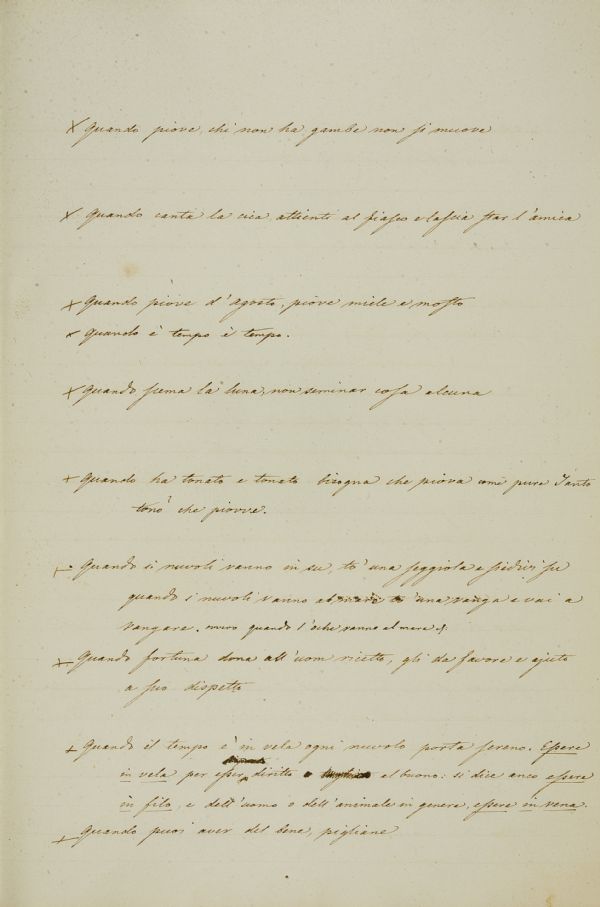 × Quando piove, chi non ha gambe non si muove
× Quando canta la cica, attienti al fiasco e lascia star l'amica
× Quando piove d'Agosto, piove miele e mosto
× Quando è tempo è tempo.
× Quando scema la luna, non seminar cosa alcuna
× Quando ha tonato e tonato bisogna che piova come pure Tanto
tonò che piovve.
Quando i nuvoli vanno in su, to' una seggiola e siedivi su
quando i nuvoli vanno al mare to' una vanga e vai a
vangare. quando l'oche vanno al mare &.
× Quando fortuna dona all'uom ricetto, gli da favore e ajuto
a suo dispetto
+ Quando il tempo è in vela ogni nuvolo porta sereno. Essere
in vela per esser diritto al buono: si dice anco essere
in filo, e dell'uomo o dell'animale in genere, essere in vena.
+ Quando puoi aver del bene, pigliane